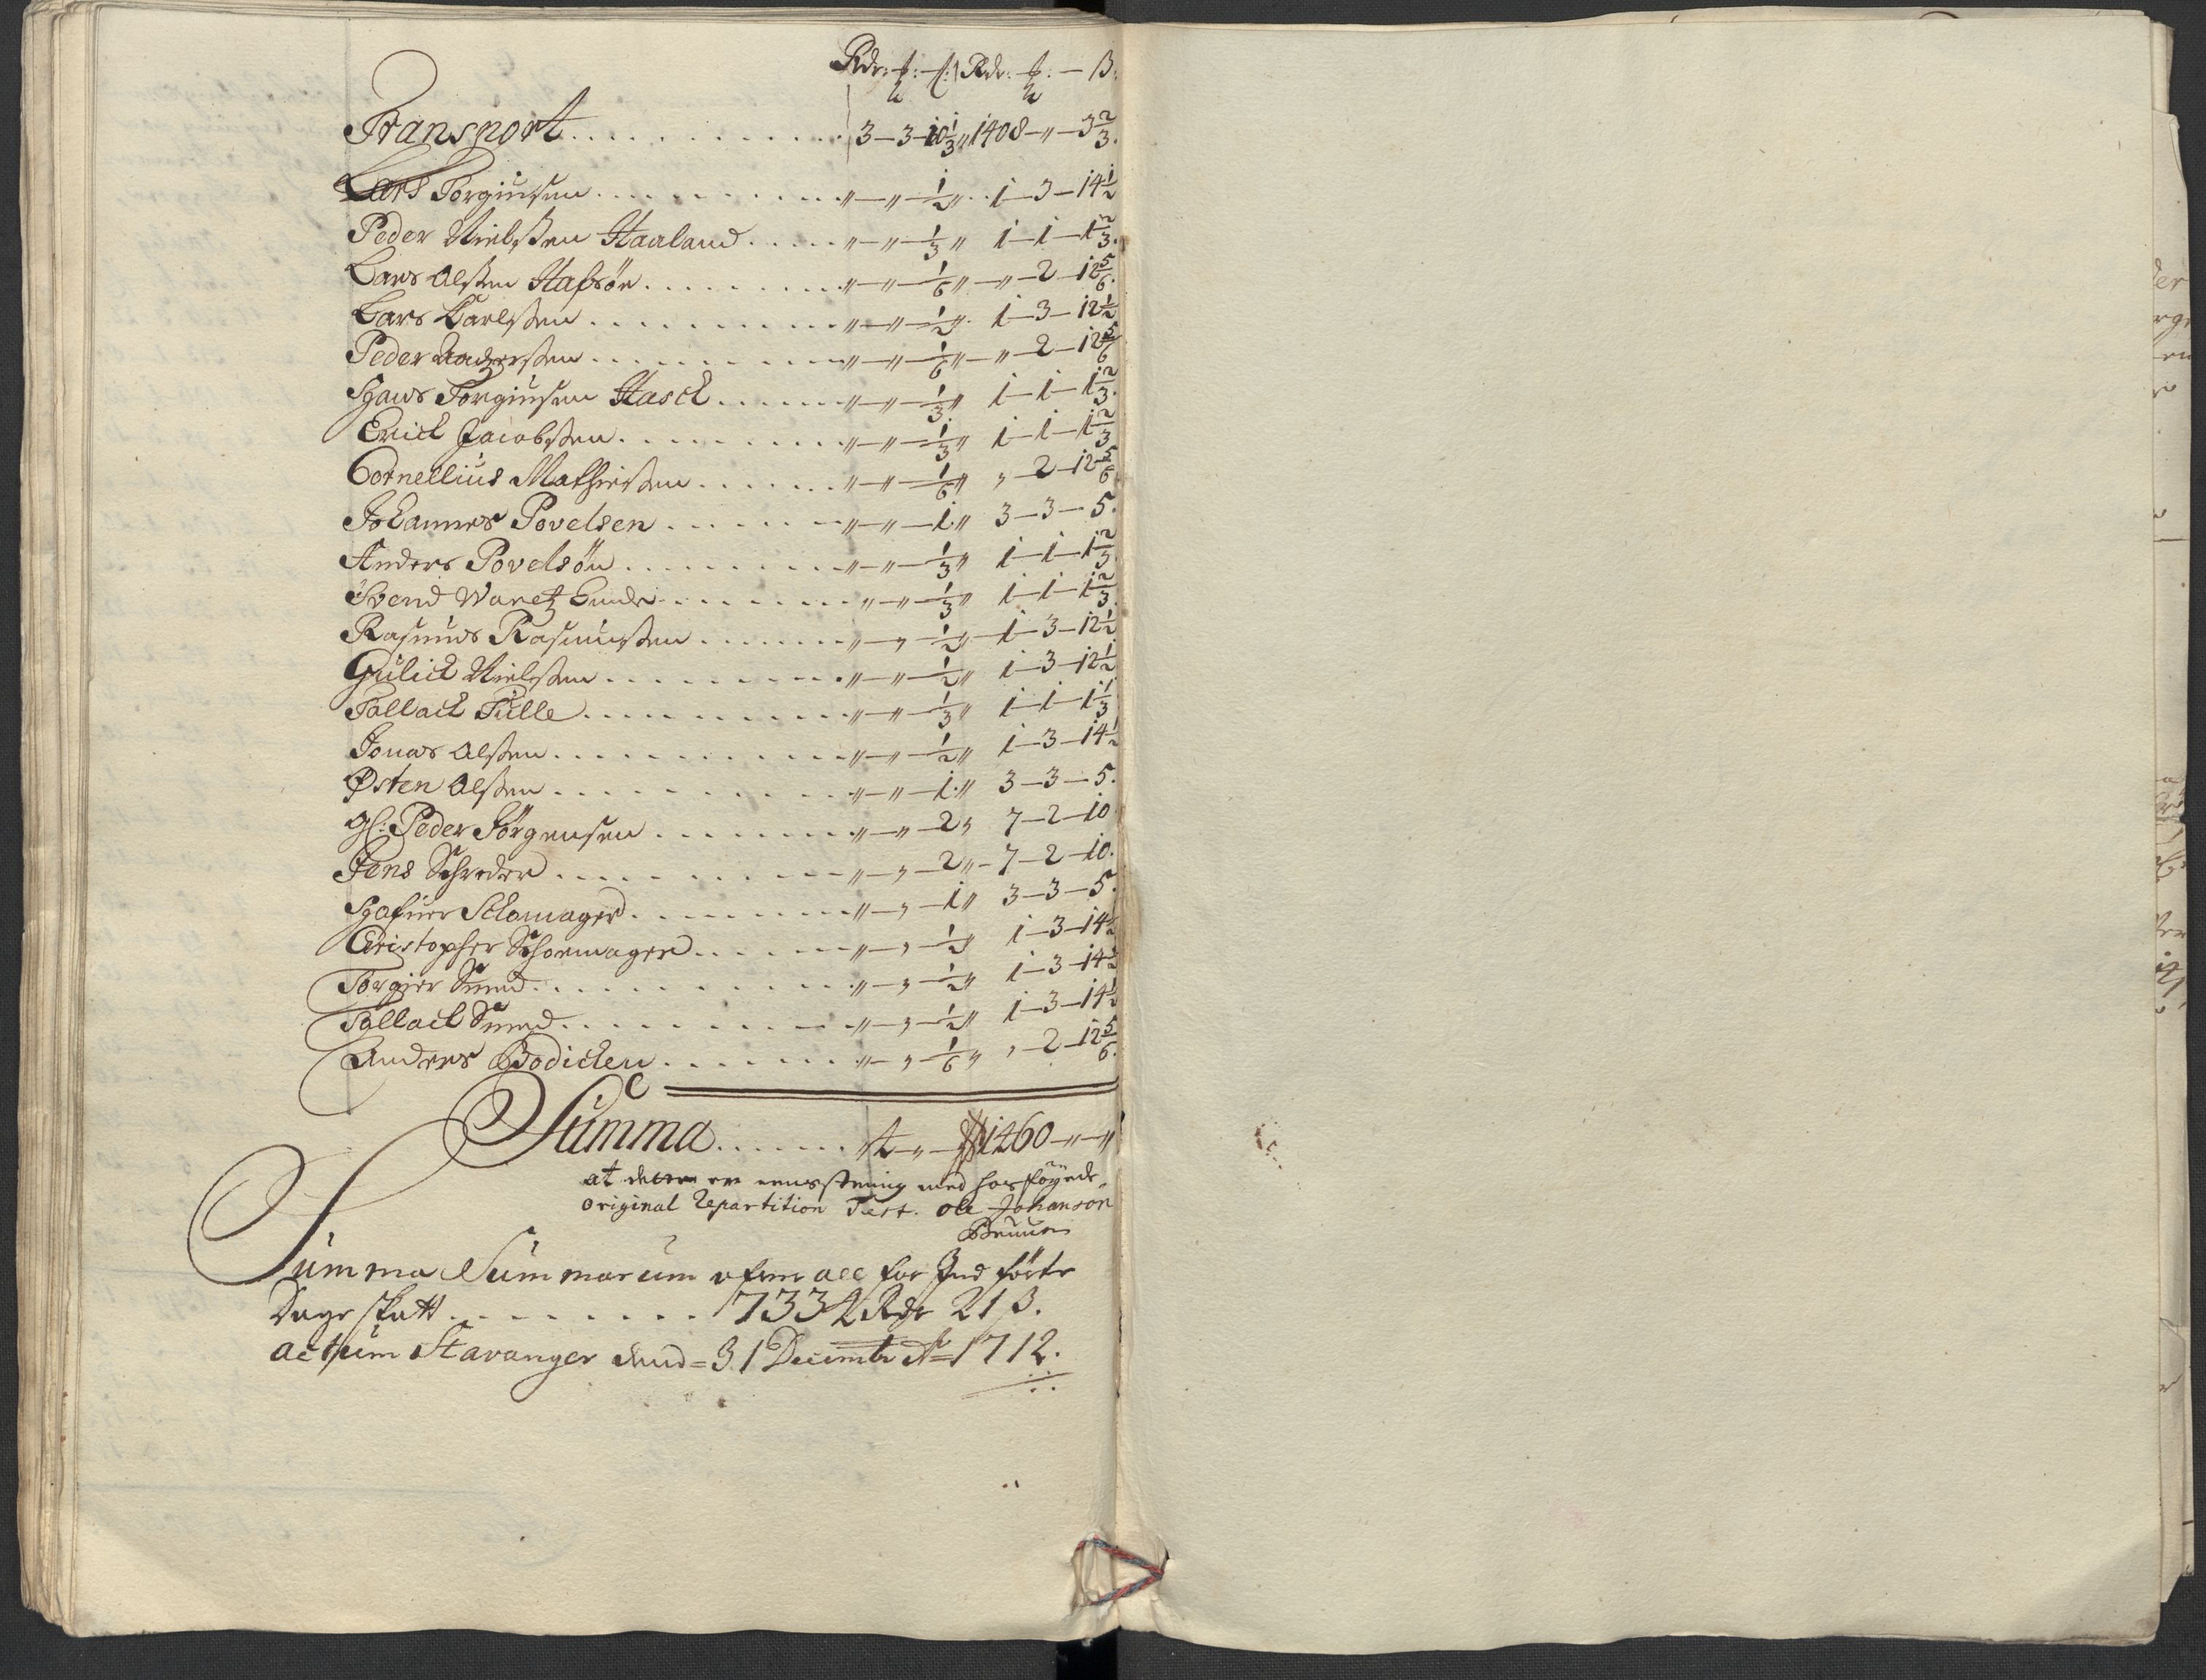 Rdr: ƒ: — ß: Rdr: ƒ: — ß:
Transport . . . . . . . . . . . 3 — 3 — 10 1/3 „ 1408 — „ — 3 2/3.
Lars Torgiusen . . . . . . . . . „ — „ — 1/2 „ . . 1 — 3 — 14 1/2
Peder Nielssen Haaland . . . . . „ — „ — 1/3 „ 1 — 1 — 1 2/3.
Lars Olssen Hafsör . . . . . . . „ — „ — 1/6 „ — „ — 2 — 12 5/6.
Lars Carlssen . . . . . . . . . „ — „ — 1/2 „ . 1 — 3 — 12 1/2
Peder Anderssen . . . . . . . . „ — „ — 1/6 „ — „ — 2 — 12 5/6
Hans Torgiusen Hasch . . . . . „ — „ — 1/3 „ 1 — 1 — 1 2/3.
Erich Jacobssen . . . . . . . . „ — „ — 1/3 „ 1 — 1 — 1 2/3
Cornellius Mathiessen . . . . . „ — „ — 1/6 „ „ — 2 — 12 5/6
Johannes Povelsen . . . . . . . „ — „ — 1 „ 3 — 3 — 5.
Anders Povelsön . . . . . . . . „ — „ — 1/3 „ 1 — 1 — 1 2/3.
Svend . . . . . . . „ — „ — 1/3 „ 1 — 1 — 1 2/3.
Rasmus Rasmussen . . . . . . . „ — „ 1/2 „ — 1 — 3 — 12 1/2
Gulich Nielssen . . . . . . . . „ — „ — 1/2 „ 1 — 3 — 12 1/2
Tollach Tulle . . . . . . . . . „ — „ — 1/3 „ 1 — 1 — 1 1/3
Jonas Olssen . . . . . . . . . „ — „ — 1/2 „ 1 — 3 — 14 1/2
Østen Olssen . . . . . . . . . „ — „ — 1 „ 3 — 3 — 5.
gl: Peder Jörgensen . . . . . . „ — „ — 2 „ 7 — 2 — 10
Jens Schreder . . . . . . . . . „ — „ — 2 „ — 7 — 2 — 10.
Schomager . . . . . . . „ — „ — 1 „ 3 — 3 — 5.
Christopher Schomager . . . . . „ — „ — 1/2 „ 1 — 3 — 14 1/2
Torgier Smed . . . . . . . . . „ — „ — 1/2 „ 1 — 3 — 14 1/2
Tollach Smed . . . . . . . . . „ — „ — 1/2 „ 1 — 3 — 14 1/2
Anders Bödicher . . . . . . . . „ — „ — 1/6 „ „ — 2 — 12 5/6.
Summa . . . . . . . „ 4 — „ — 1460 — „ — „
at dette er eensstemig med hosföyede
original Repartition Test. Ole Johansön
Bruun
Summa Summarum ofver all for Ind förte
Dage skatt . . . . . . . . 7334 Rdr 21 ß.
actum Stavanger dend = 31 Decembr Ao 1712.